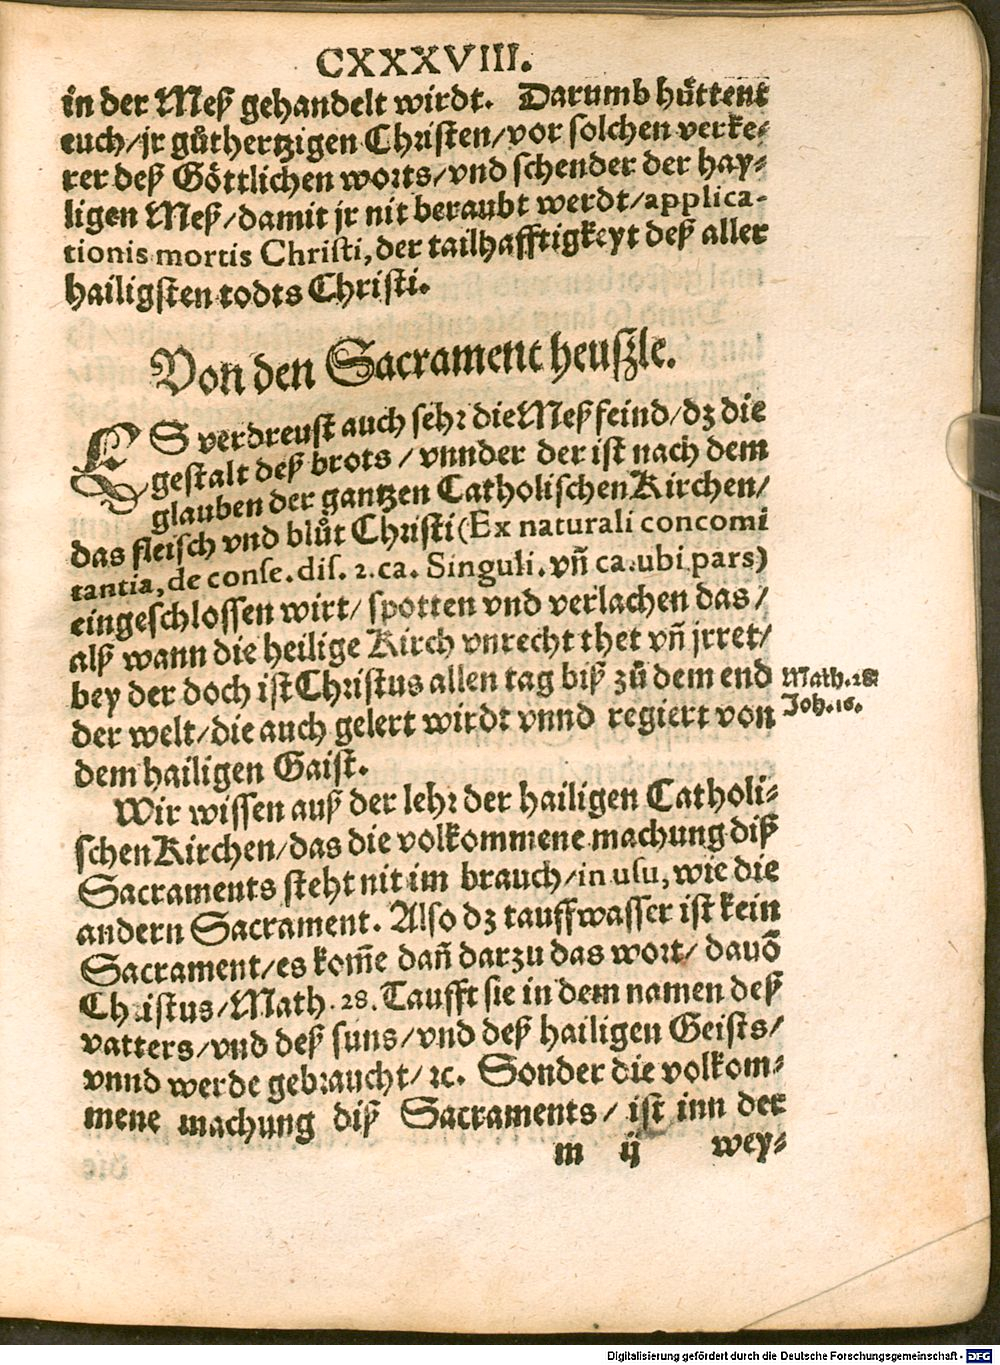 CXXXVIII.
in der Meß gehandelt wirdt. Darumb huͤttent
euch/jr guͦthertzigen Christen/vor solchen verke-
rer deß Goͤttlichen worts/vnd schender der hay-
ligen Meß/damit jr nit beraubt werdt/applica-
tionis mortis Christi, der tailhafftigkeyt deß aller
hailigsten todts Christi.
Von den Sacrament heuszle.
ES verdreust auch sehr die Meß feind/dz die
gestalt deß brots/vnnder der ist nach dem
glauben der gantzen Catholischen Kirchen/
das fleisch vnd bluͦt Christi (Ex naturali concomi
tantia, de conse. dis. 2. ca. Singuli. vñ ca. ubi pars)
eingeschlossen wirt/spotten vnd verlachen das/
alß wann die heilige Kirch vnrecht thet vñ jrret/
bey der doch ist Christus allen tag biß zuͦ dem end
Math. 28.
Joh. 16.
der welt/die auch gelert wirdt vnnd regiert von
dem hailigen Gaist.
Wir wissen auß der lehr der hailigen Catholi-
schen Kirchen/das die volkommene machung diß
Sacraments steht nit im brauch/in usu, wie die
andern Sacrament. Also dz tauffwasser ist kein
Sacrament/es kom̃e dañ darzu das wort/dauõ
Christus/Math. 28. Taufft sie in dem namen deß
vatters/vnd deß suns/vnd deß hailigen Geists/
vnnd werde gebraucht/ꝛc. Sonder die volkom-
mene machung diß Sacraments/ist inn der
m ij wey-
Digitalisierung gefördert durch die Deutsche Forschungsgemeinschaft - DFG